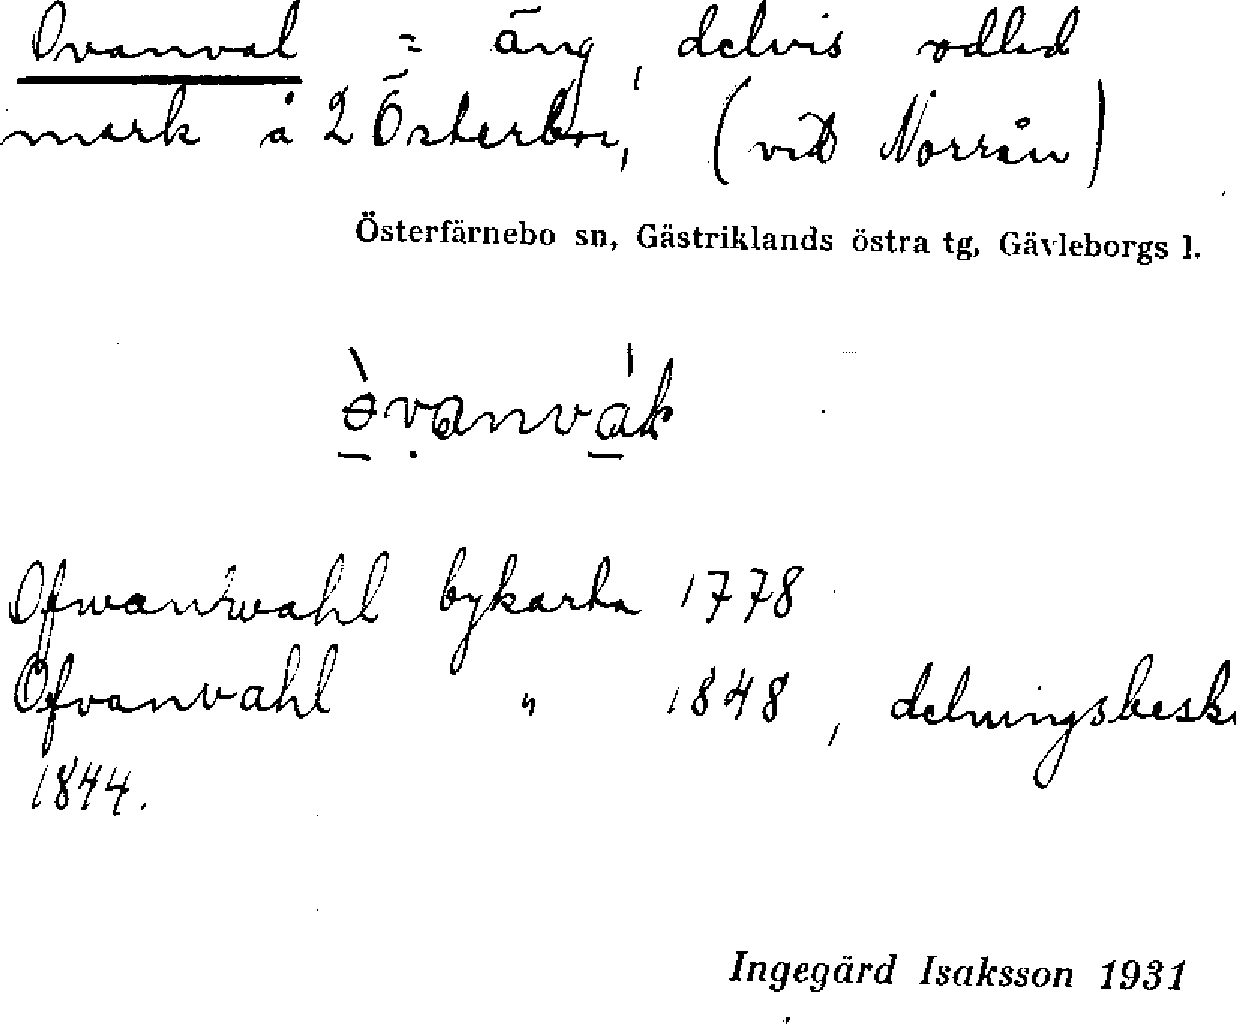 Ovanval = äng, delvis odlad
mark å 2 Österbor, (vid Norrån)
Österfärnebo sn, Gästriklands östra tg, Gävleborgs l.
Ofwanwahl bykarta 1778
Ofvanvahl " 1848, delningsbeskr
1844.
Ingegärd Isaksson 1931